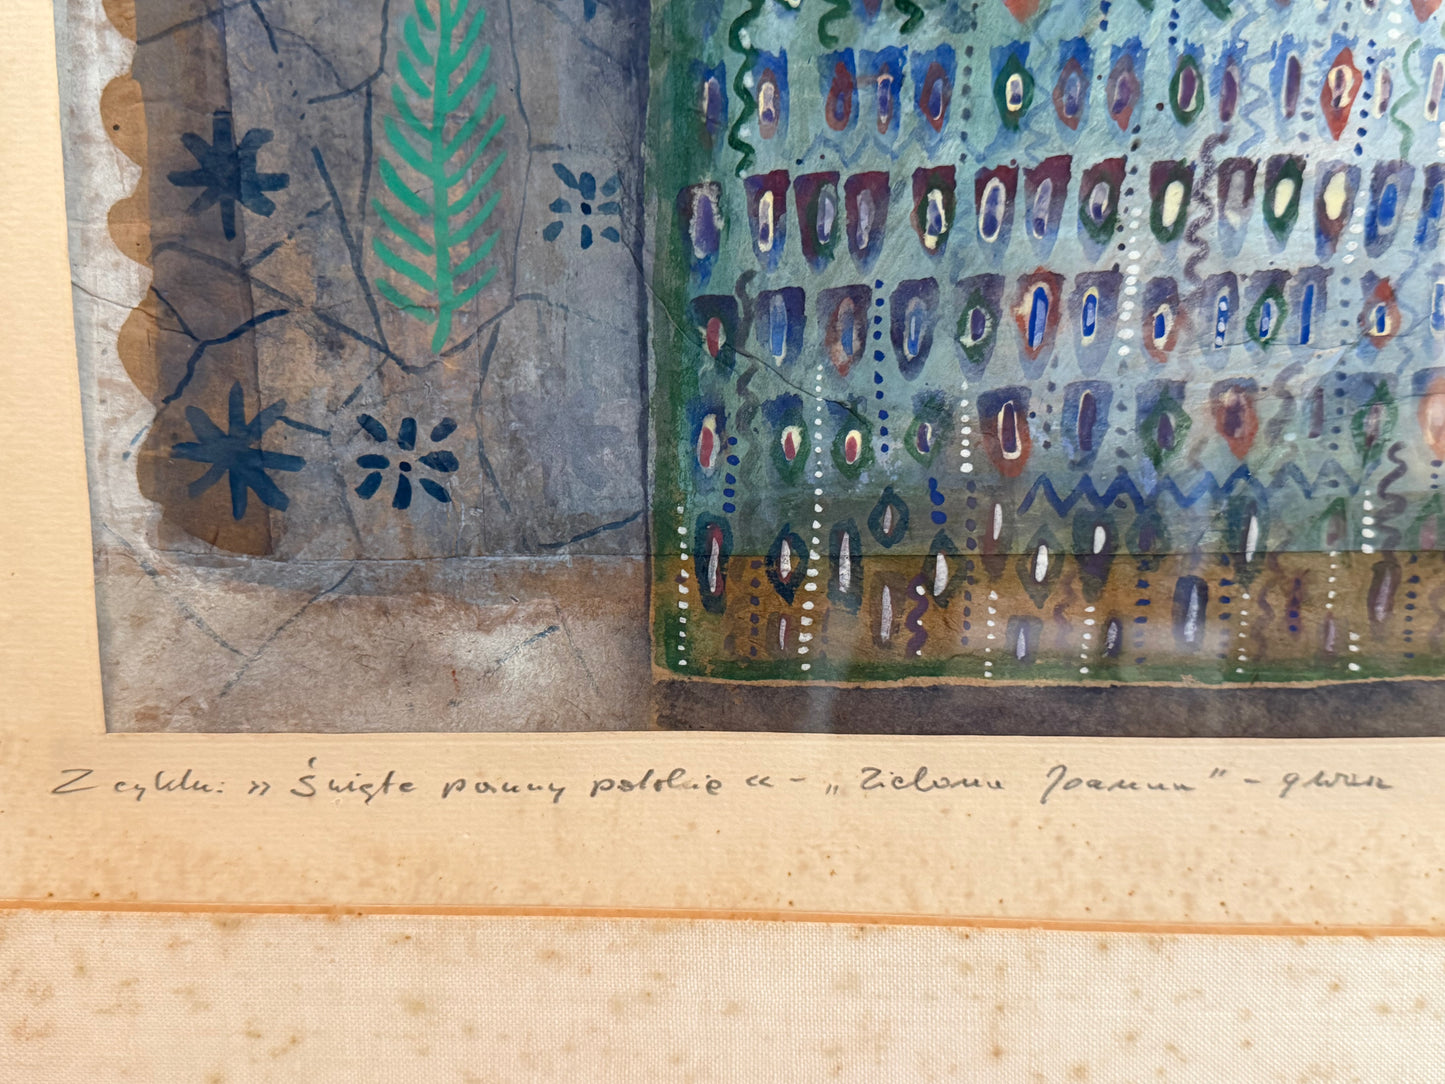 Z cyklu: » Święte panny polskie « – „Zielona Joanna" – gwasz